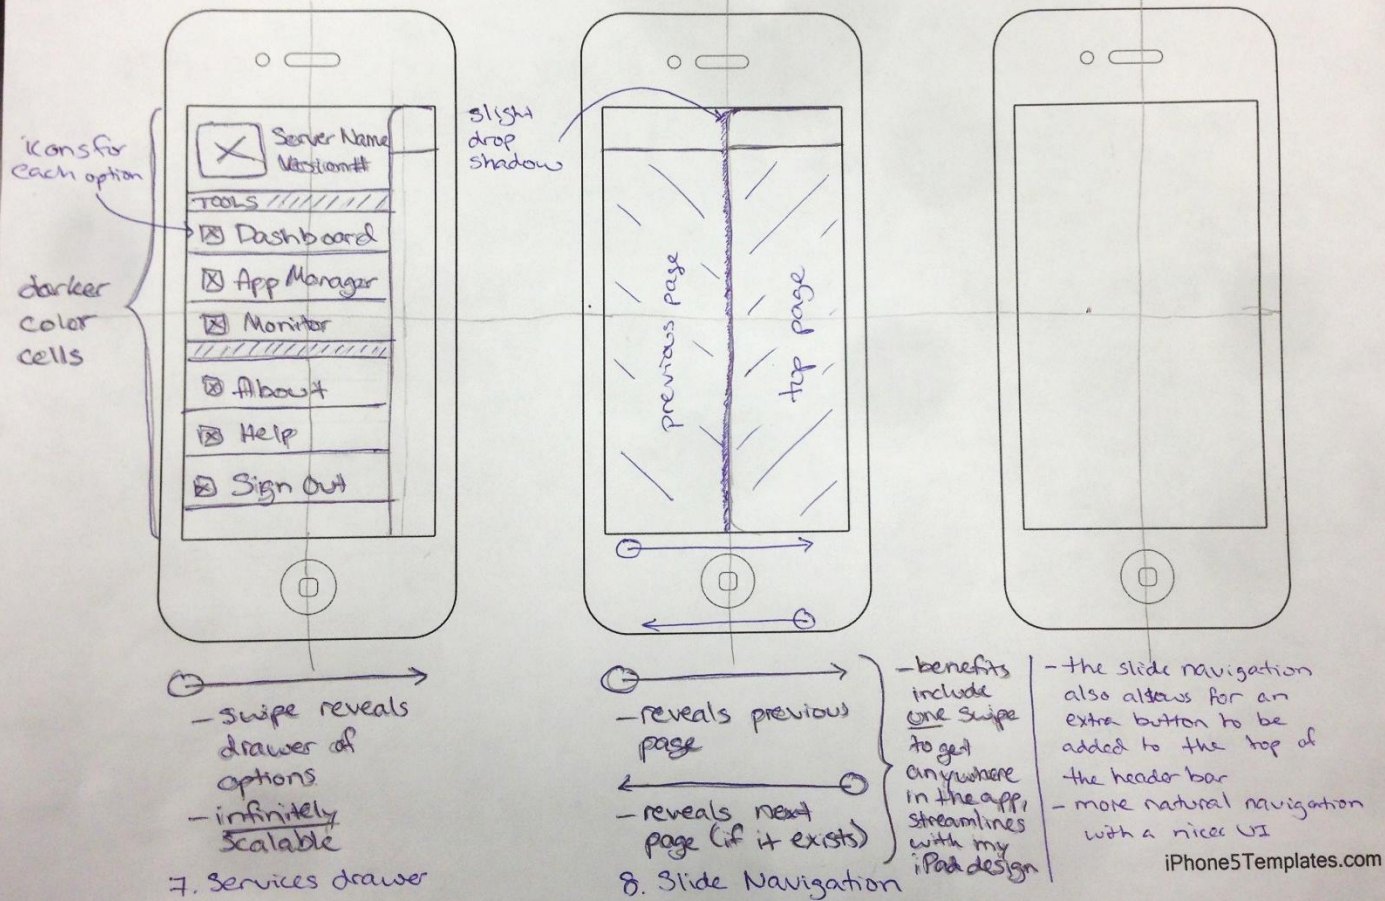 icons for
each option
darker
color
cells
Server Name
Version#
TOOLS
Dashboard
App Manager
Monitor
About
Help
Sign Out
- swipe reveals
drawer of
options
- infinitely
scalable
7. Services drawer
slight
drop
shadow
previous page
top page
- reveals previous
page
- reveals next
page (if it exists)
8. Slide Navigation
- benefits
include
one swipe
to get
anywhere
in the app,
streamlines
with my
iPad design
- the slide navigation
also allows for an
extra button to be
added to the top of
the header bar
- more natural navigation
with a nicer UI
iPhone5Templates.com